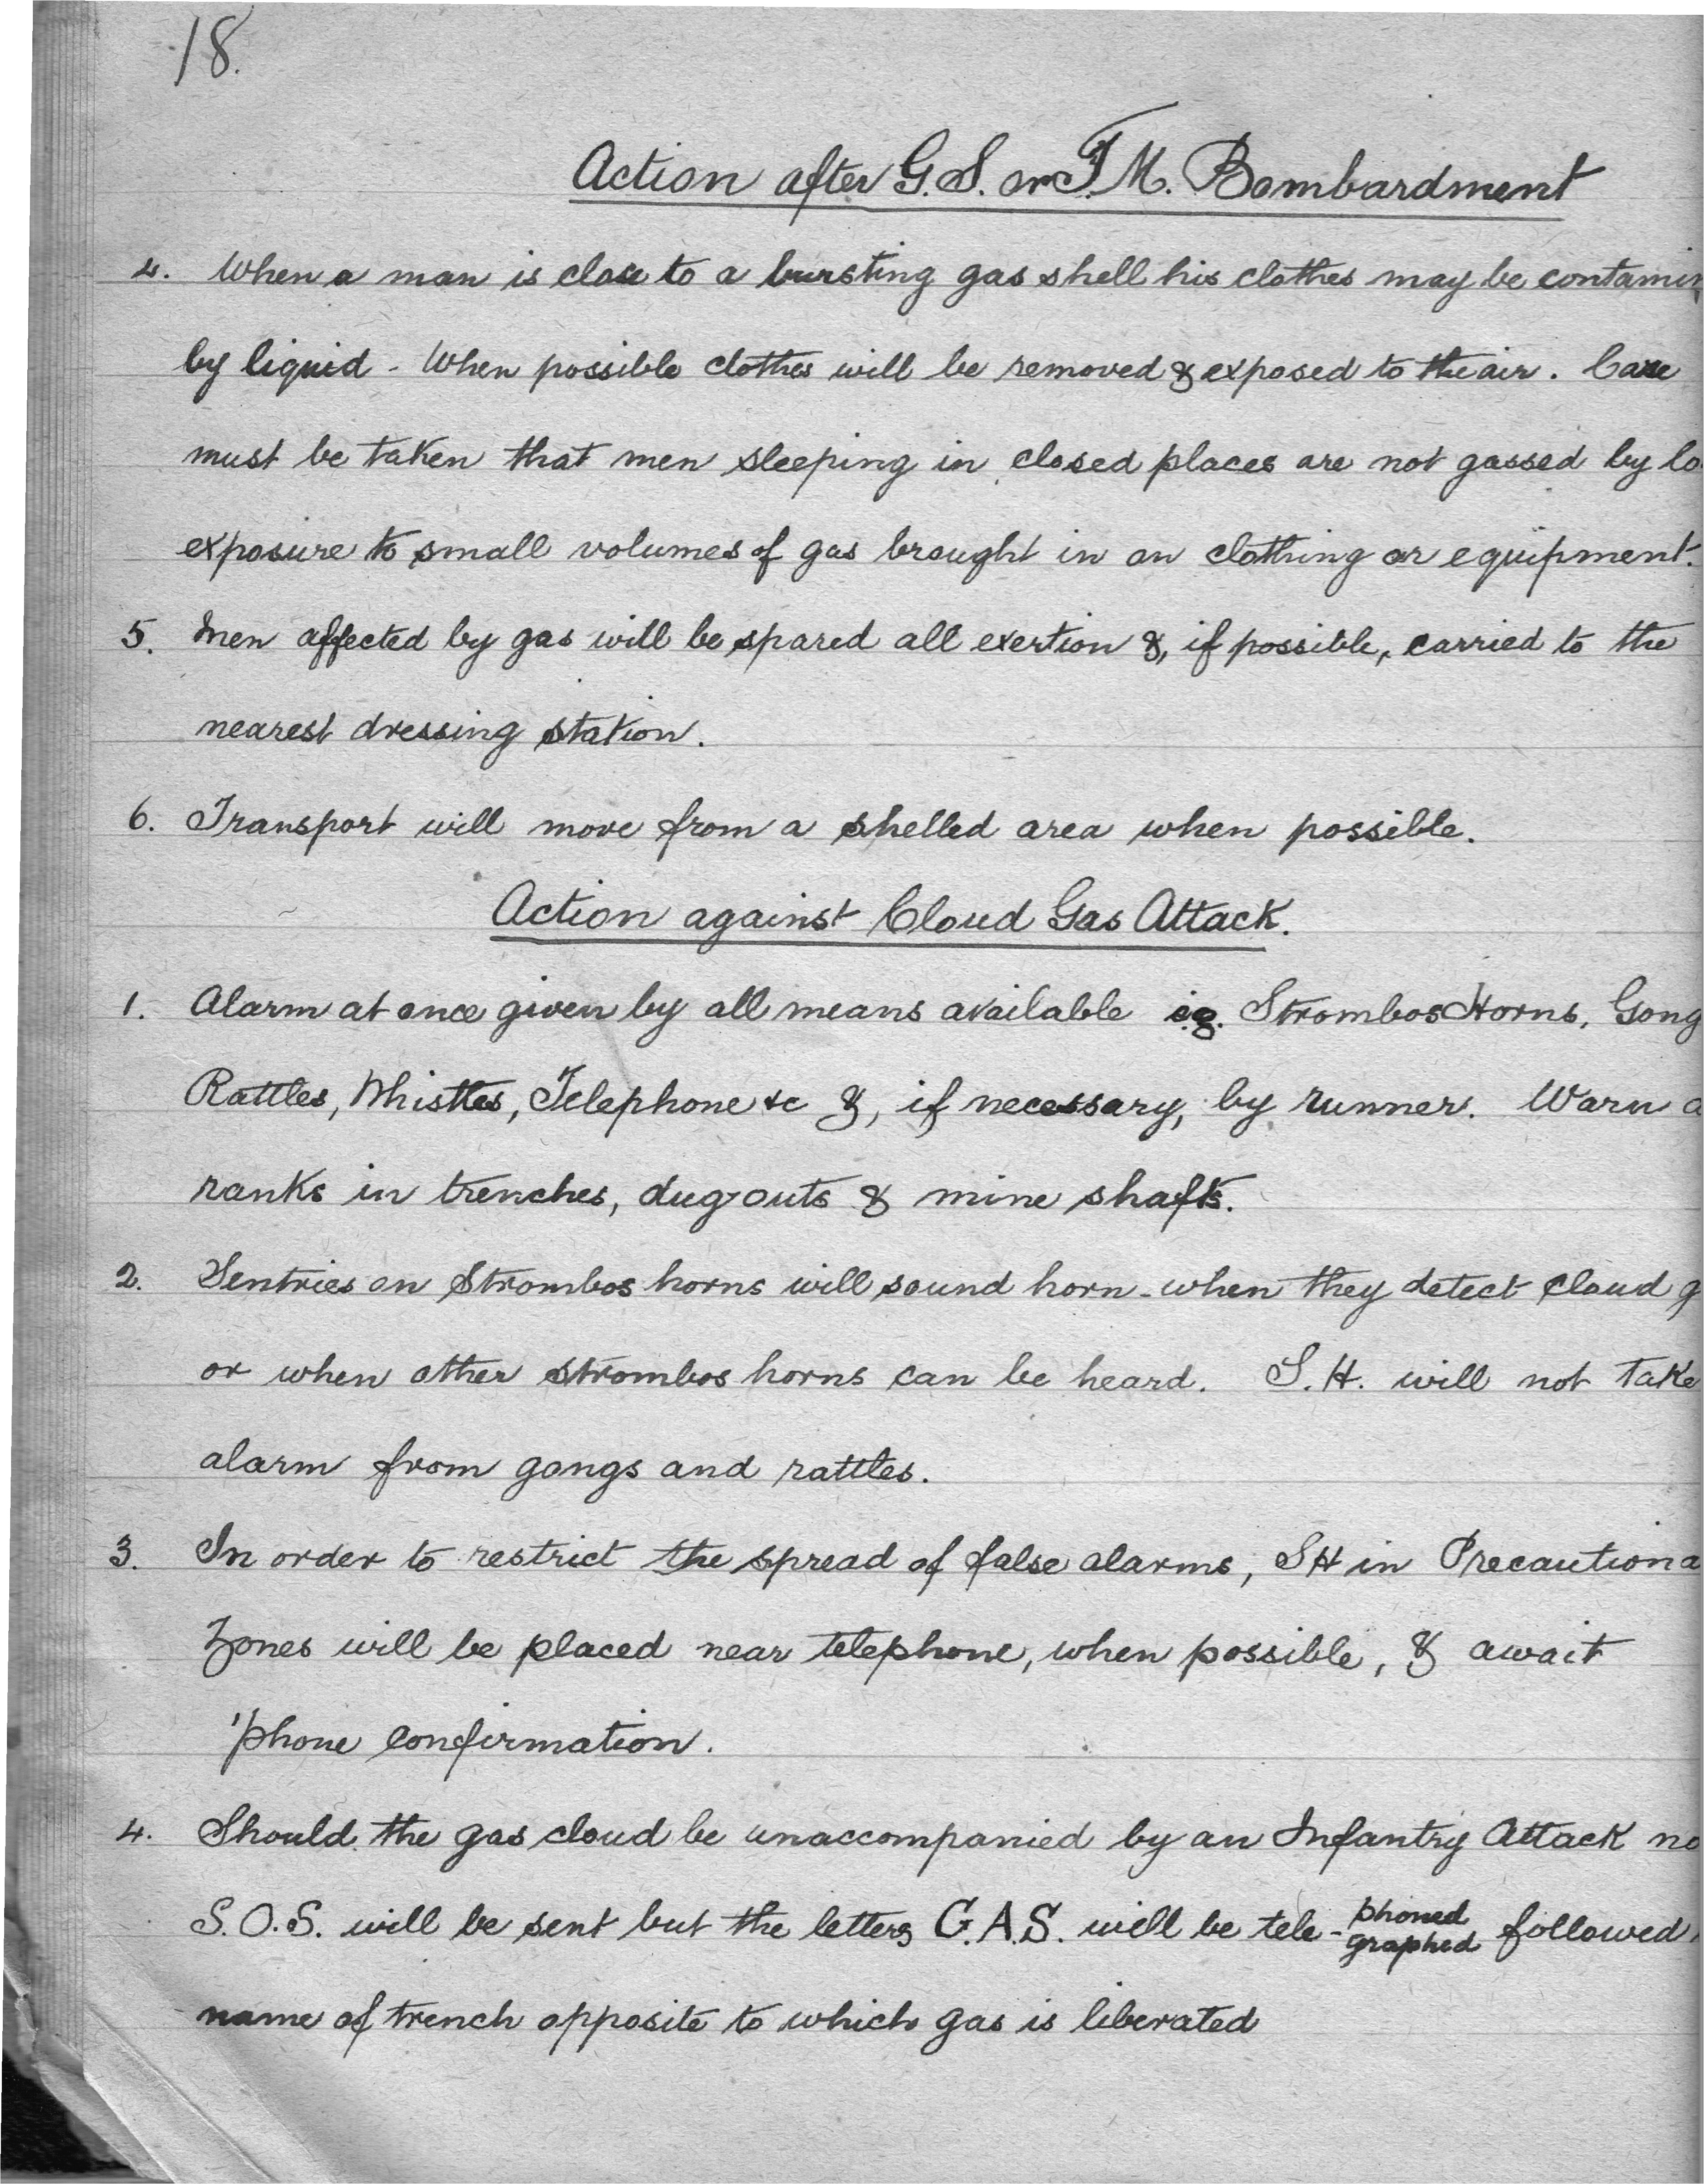 18.
Action after G.S. or T.M. Bombardment
4. When a man is close to a bursting gas shell his clothes may be contamin
by liquid - When possible clothes will be removed & exposed to the air. Care
must be taken that men sleeping in closed places are not gassed by lo
exposure to small volumes of gas brought in on clothing or equipment.
5. Men affected by gas will be spared all exertion &, if possible, carried to the
nearest dressing station.
6. Transport will move from a shelled area when possible.
Action against Cloud Gas Attack.
1. Alarm at once given by all means available e.g. Strombos Horns, Gong
Rattles, Whistles, Telephone &c &, if necessary, by runner. Warn a
ranks in trenches, dug outs & mine shafts.
2. Sentries on Strombos horns will sound horn - when they detect cloud g
or when other strombos horns can be heard. S.H. will not take
alarm from gongs and rattles.
3. In order to restrict the spread of false alarms, SH in Precautiona
Zones will be placed near telephone, when possible, & await
'phone confirmation.
4. Should the gas cloud be unaccompanied by an Infantry Attack no
S.O.S. will be sent but the letters G.A.S. will be tele- phoned graphed followed
name of trench opposite to which gas is liberated